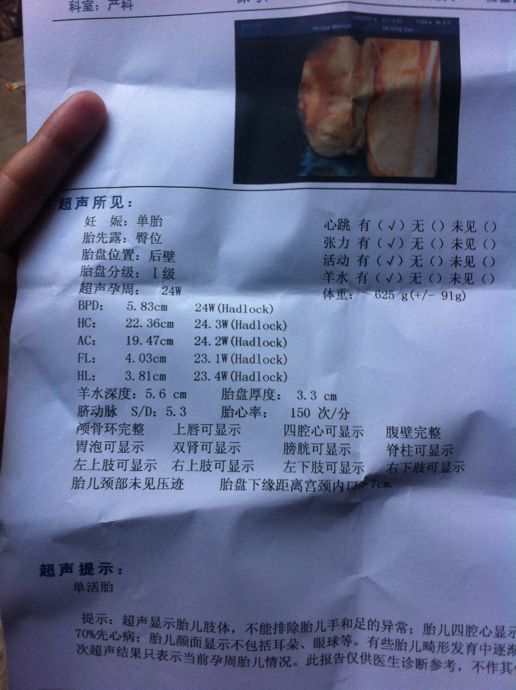 科室：产科
超声所见：
妊 娠：单胎
心跳 有（√）无（）未见（）
胎先露：臀位
张力 有（√）无（）未见（）
胎盘位置：后壁
活动 有（√）无（）未见（）
胎盘分级：Ⅰ级
羊水 有（√）无（）未见（）
超声孕周： 24W
体重： 625 g(+/- 91g)
BPD： 5.83cm 24W(Hadlock)
HC： 22.36cm 24.3W(Hadlock)
AC： 19.47cm 24.2W(Hadlock)
FL： 4.03cm 23.1W(Hadlock)
HL： 3.81cm 23.4W(Hadlock)
羊水深度：5.6 cm 胎盘厚度： 3.3 cm
脐动脉 S/D：5.3 胎心率： 150 次/分
颅骨环完整 上唇可显示 四腔心可显示 腹壁完整
胃泡可显示 双肾可显示 膀胱可显示 脊柱可显示
左上肢可显示 右上肢可显示 左下肢可显示 右下肢可显示
胎儿颈部未见压迹 胎盘下缘距离宫颈内口>7cm.
超声提示：
单活胎
提示：超声显示胎儿肢体，不能排除胎儿手和足的异常；胎儿四腔心显示
70%先心病；胎儿颜面显示不包括耳朵、眼球等。有些胎儿畸形发育中逐渐
次超声结果只表示当前孕周胎儿情况。此报告仅供医生诊断参考，不作其